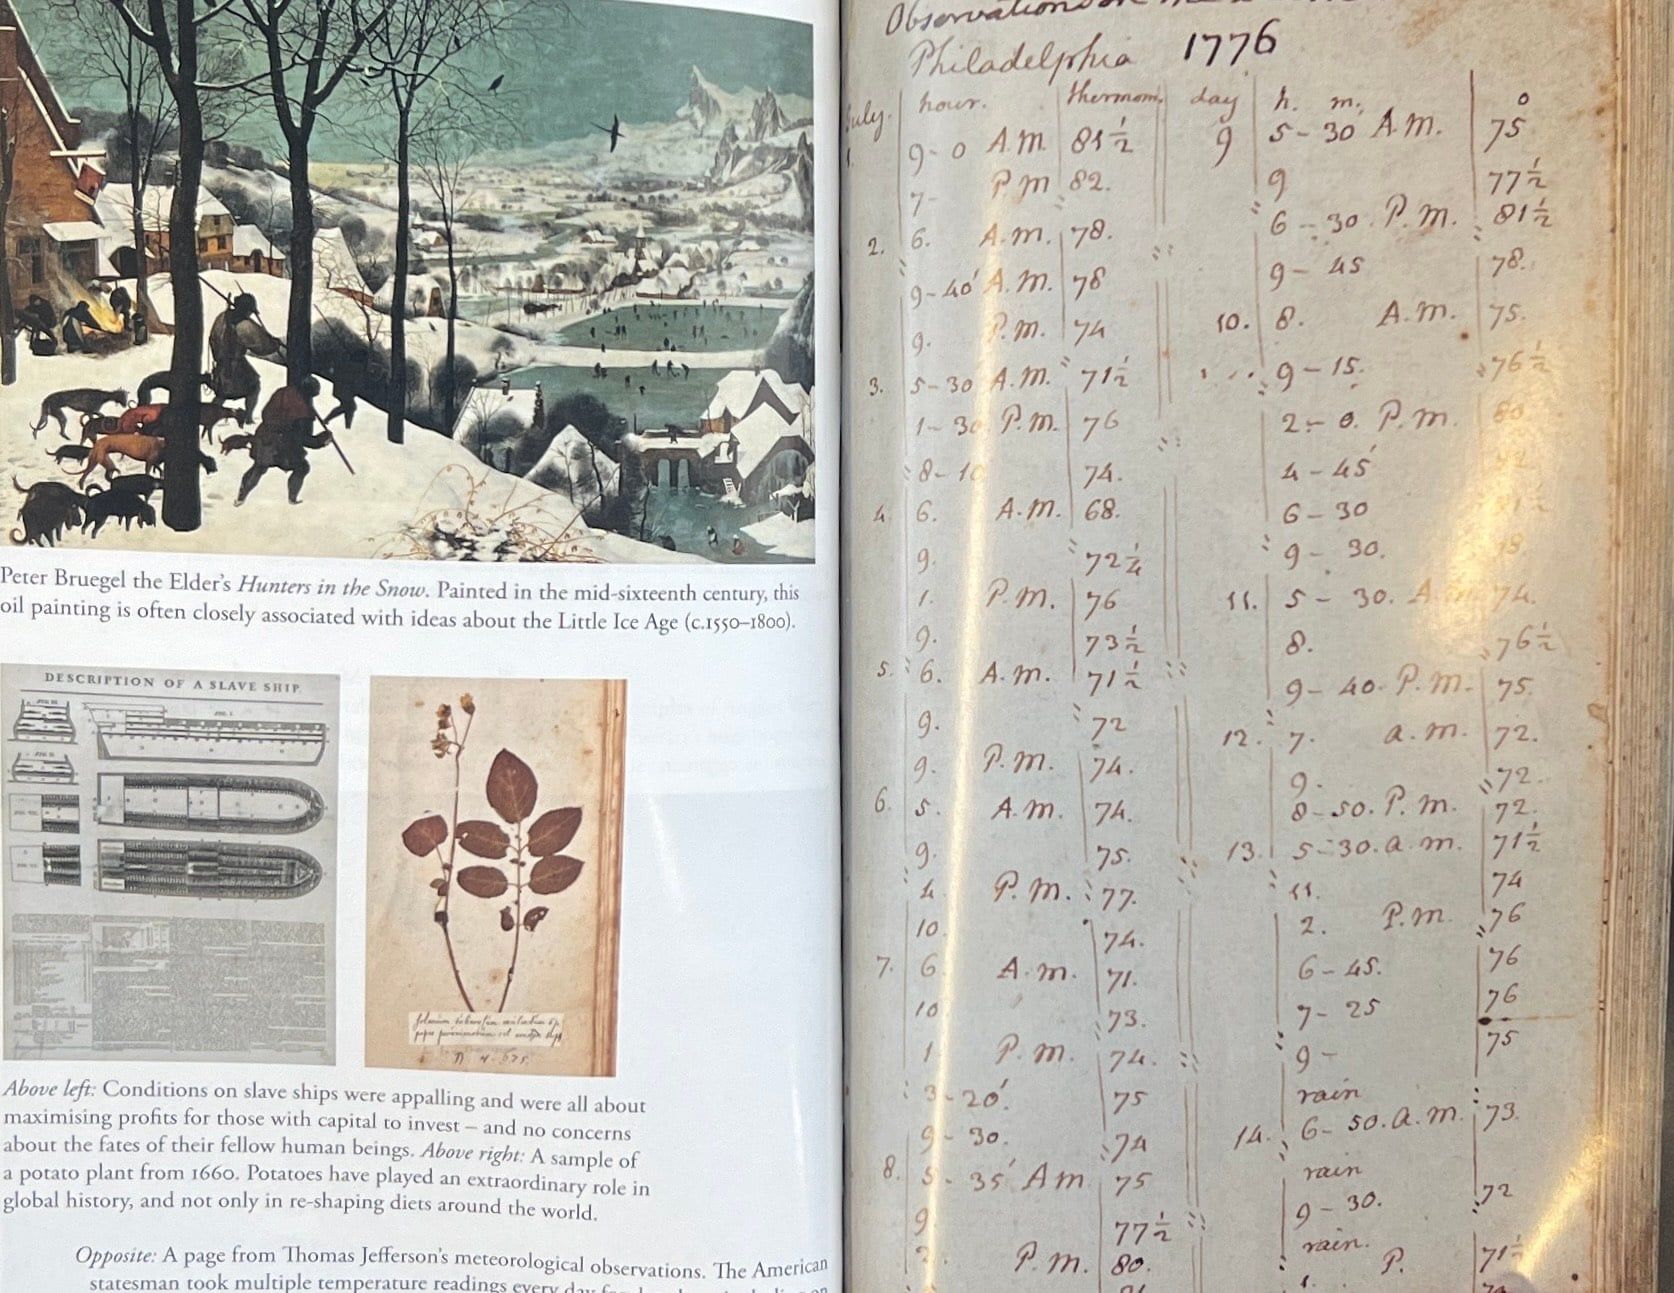 Peter Bruegel the Elder's Hunters in the Snow. Painted in the mid-sixteenth century, this
oil painting is often closely associated with ideas about the Little Ice Age (c.1550–1800).
DESCRIPTION OF A SLAVE SHIP.
D. 4. 675.
Above left: Conditions on slave ships were appalling and were all about
maximising profits for those with capital to invest – and no concerns
about the fates of their fellow human beings. Above right: A sample of
a potato plant from 1660. Potatoes have played an extraordinary role in
global history, and not only in re-shaping diets around the world.
Opposite: A page from Thomas Jefferson's meteorological observations. The American
statesman took multiple temperature readings every day
Observations
Philadelphia 1776
July. hour. thermom.
9-0 A.M 81½
7- P M 82.
2. 6. A.M. 78.
9-40' A.M. 78
9. P.M. 74
3. 5-30 A.M. 71½
1-30 P.M. 76
8-10 74.
4. 6. A.M. 68.
9. 72¼
1. P.M. 76
9. 73½
5. 6. A.M. 71½
9. 72
9. P.M. 74.
6. 5. A.M. 74.
9. 75.
4. P.M. 77.
10. 74.
7. 6. A.M. 71.
10 73.
1 P.M. 74.
3-20'. 75
9-30. 74
8. 5-35' A M 75
9. 77½
P.M. 80.
day h. m. o
9 5-30 A.M. 75
9 77½
6-30. P.M. 81½
9-45 78.
10. 8. A.M. 75.
9-15. 76½
2-0. P.M. 80
4-45'
6-30
9-30.
11. 5-30. A 74.
8. 76½
9-40. P.M. 75.
12. 7. a.m. 72.
9. 72.
8-50. P.M. 72.
13. 5-30. a.m. 71½
11. 74
2. P.M. 76
6-45. 76
7-25 76
9- 75
rain
14. 6-50. a.m. 73.
rain
9-30. 72
rain.
1. P. 71½